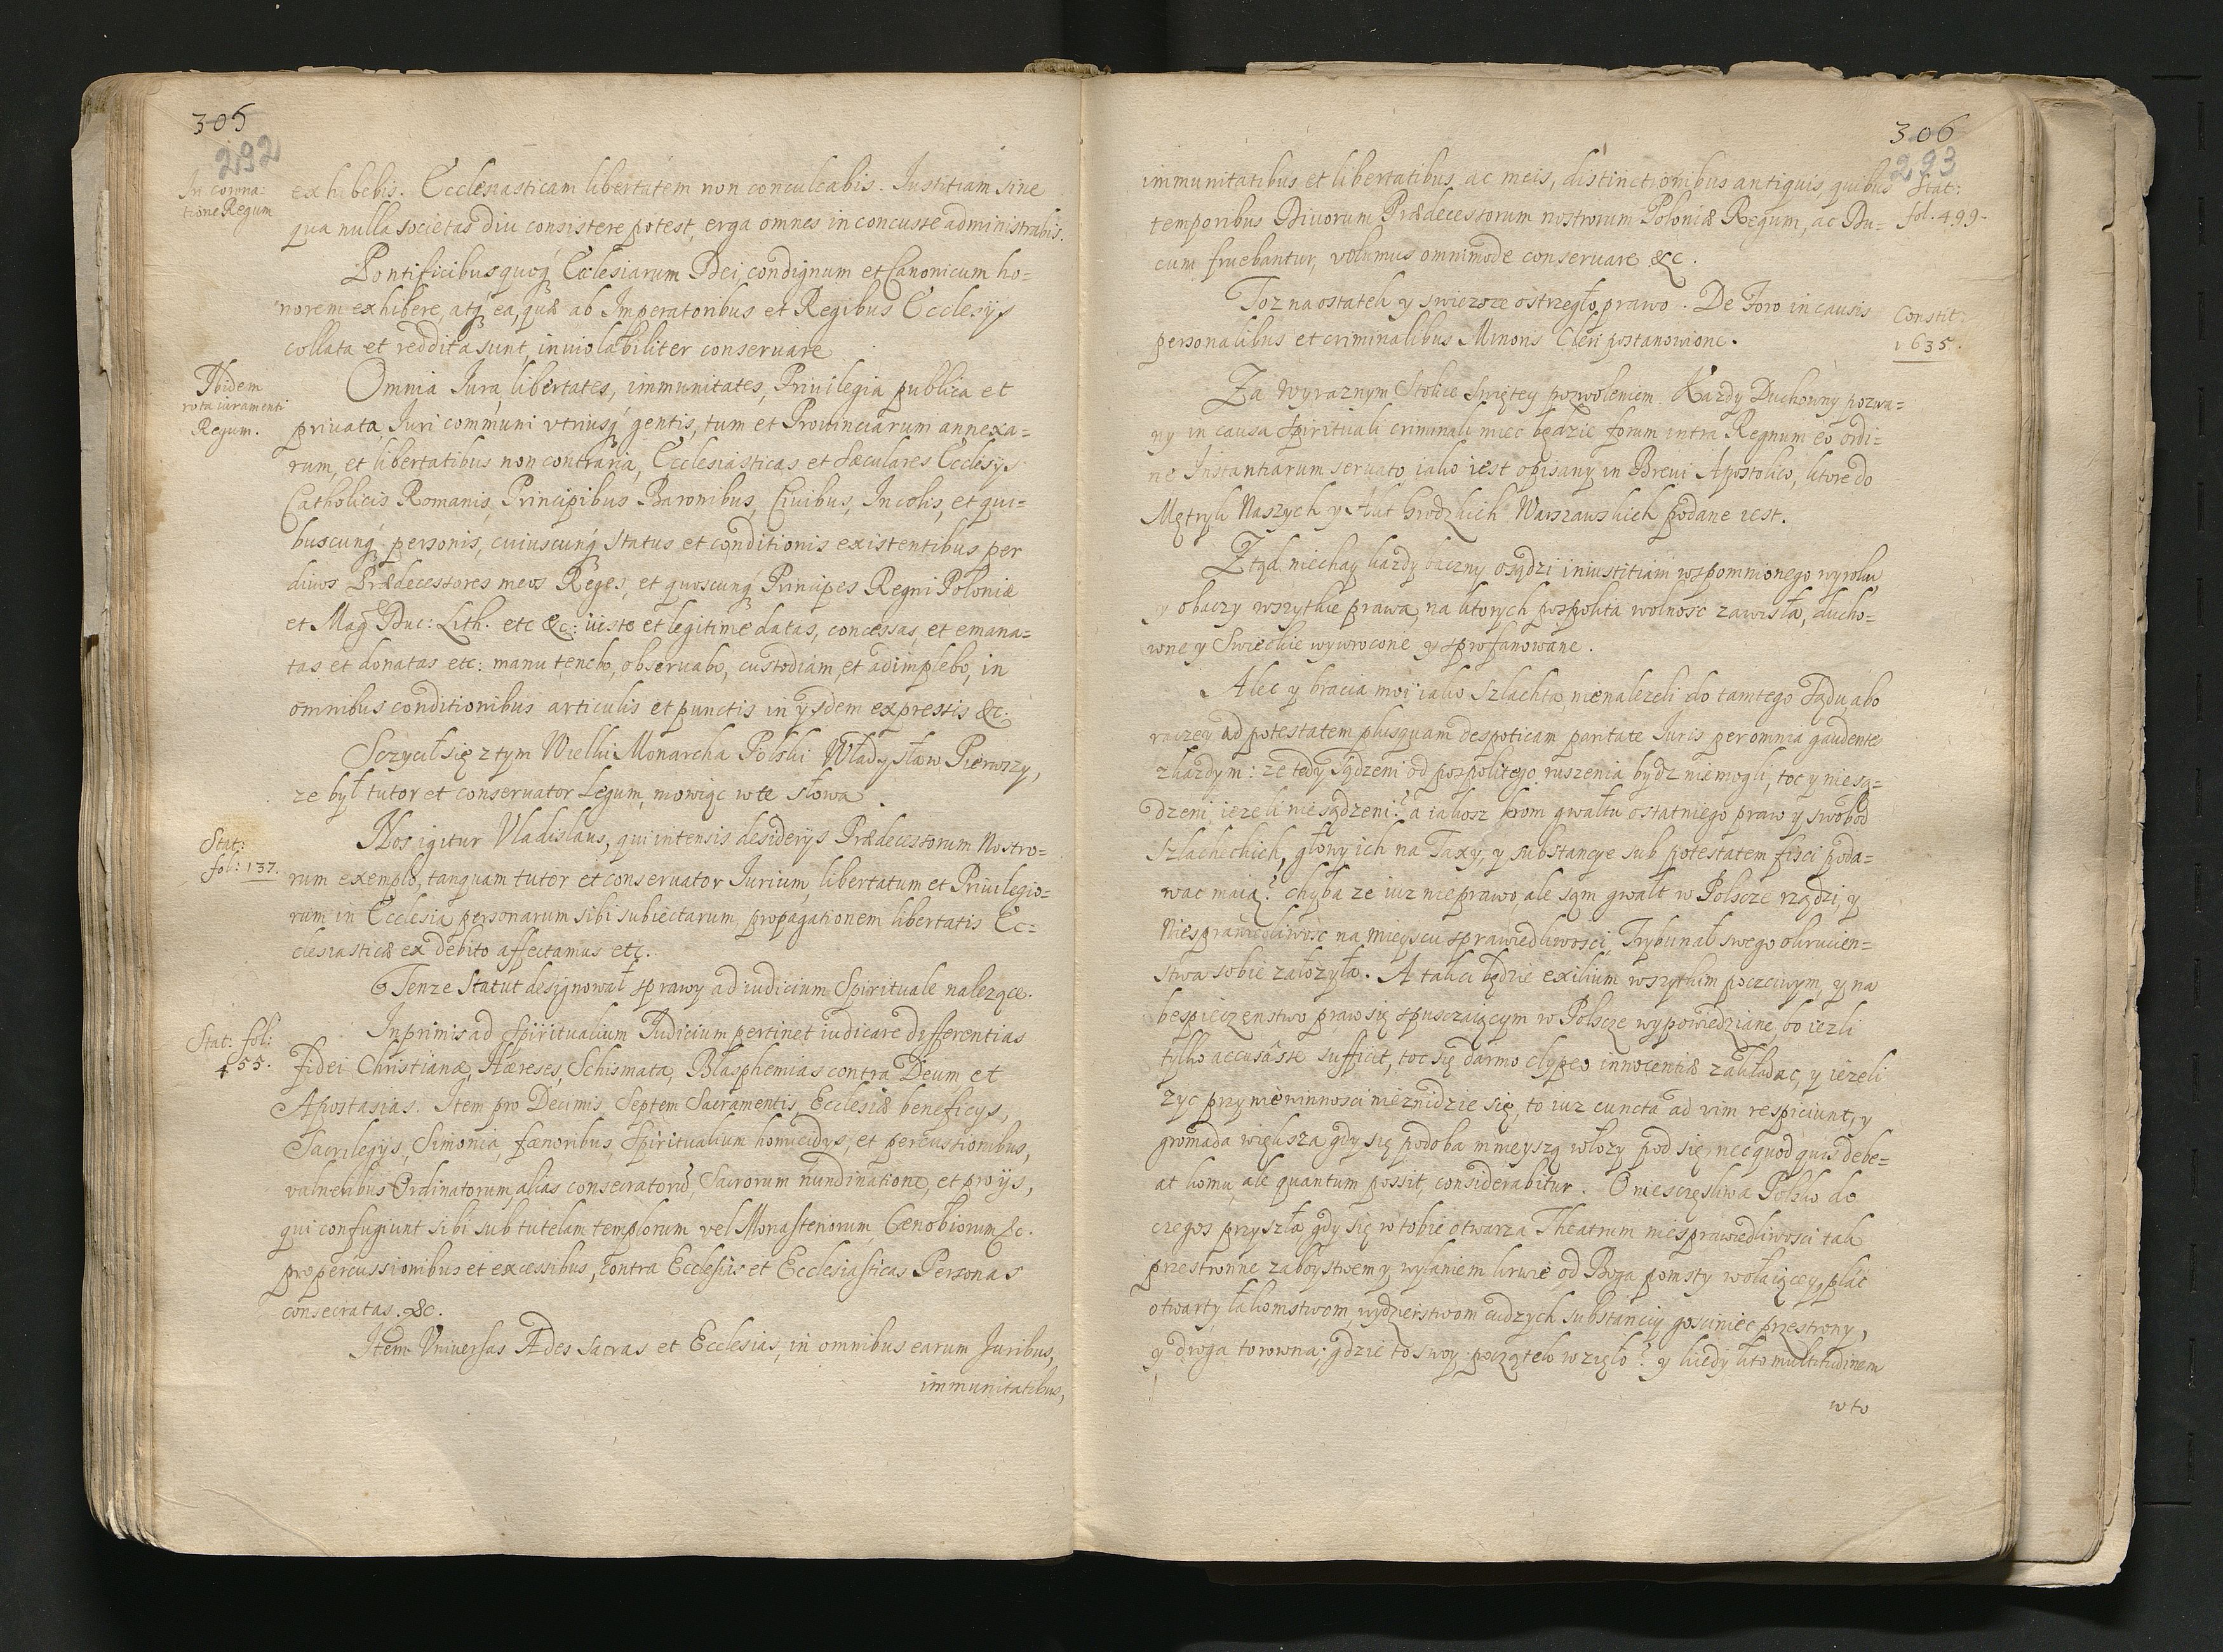 305
292
In corona:
tione Regum
exhibebis. Ecclesiasticam libertatem non conculcabis. Iustitiam sine
qua nulla societas diu consistere potest, erga omnes inconcusse administrabis.
Pontificibus quoq́ Ecclesiarum Dei, condignum et Canonicum ho=
norem exhibere, atq́ ea, quæ ab Imperatoribus et Regibus Ecclesijs
collata et reddita sunt, inviolabiliter conseruare
Ibidem
rota iuramenti
Regum.
Omnia Iura, libertates, immunitates, Priuilegia publica et
priuata, Iuri communi vtriusq́ gentis, tum et Prouinciarum annexa=
rum, et libertatibus non contraria, Ecclesiasticas et sæculares Ecclesijs
Catholicis Romanis, Principibus Baronibus, Ciuibus, Incolis, et qui=
buscunq́ personis, cuiuscunq́ status et conditionis existentibus per
diuos Prædecessores meos Reges, et quoscunq́ Principes Regni Poloniæ
et Mag Duc: Lith. etc &c: iuste et legitime datas, concessas, et emana=
tas et donatas etc: manu tenebo, obseruabo, custodiam, et adimplebo, in
omnibus conditionibus articulis et punctis in ijsdem expressis &c.
Sczycił się z tym Wielki Monarcha Polski Władysław Pierwszy,
ze był tutor et conseruator Legum, mowiąc w te słowa
Stat:
fol: 137.
Nos igitur Vladislaus, qui intensis desiderijs Prædecessorum Nostro=
rum exemplo, tanquam tutor et conseruator Iurium, libertatum et Priuilegio=
rum in Ecclesia personarum sibi subiectarum, propagationem libertatis Ec=
clesiasticæ ex debito affectamus etc.
Tenze Statut designował sprawy ad iudicium Spirituale nalezące.
Stat: fol:
455.
Inprimis ad Spiritualium Iudicium pertinet iudicare differentias
fidei Christianæ, Hæreses, Schismata, Blasphemias contra Deum et
Apostasias. Item pro Decimis, Septem Sacramentis, Ecclesiæ beneficijs,
Sacrilegijs, Simonia, fænoribus, Spiritualium homicidijs, et percussionibus,
vulneribus Ordinatorum, alias consecratorū, Sacrorum nundinatione, et pro ijs,
qui confugiunt sibi sub tutelam templorum vel Monasteriorum, Cænobiorum &c.
pro percussionibus et excessibus, contra Ecclesiis et Ecclesiasticas Personas
consecratas. &c.
Item Vniuersas Ædes Sacras et Ecclesias, in omnibus earum Juribus,
immunitatibus,
306
293
immunitatibus et libertatibus, ac meis, distinctionibus antiquis, quibus
Stat:
fol. 499.
temporibus Diuorum Prædecessorum nostrorum Poloniæ Regum, ac Du=
cum fruebantur, volumus omnimode conseruare &c.
Toz na ostatek y swiezsze ostrzegło prawo. De Foro in causis
personalibus et criminalibus Minoris Cleri postanowione.
Constit:
1635.
Za wyraznym Stolice Swiętey pozwoleniem. Kazdy Duchowny pozwa=
ny in causa spirituali criminali miec będzie forum intra Regnum eo ordi=
ne Instantiarum seruato, iako iest opisany in Breui Apostolico, ktore do
Metryk Naszych y Akt Grodzkich Warszawskich podane iest.
Ztąd niechay kazdy baczny osądzi iniustitiam wspomnionego wyroku
y obaczy wszytkie prawa, na ktorych pospolita wolnosc zawisła, ducho=
wne y Swieckie wywrocone y sprofanowane.
Alec y bracia moi iako szlachta, nienalezeli do tamtego Sądu, abo
raczey ad potestatem plusquam despoticam paritate Iuris per omnia gaudente
z kazdym: ze tedy sądzeni od pospolitego ruszenia bydz niemogli, toc y niesą=
dzeni, iezeli nie sądzeni? a iakosz krom gwałtu ostatniego praw y swobod
Szlacheckich, głowy ich na Taxy, y substancye sub potestatem fisci poda=
wac maią? chyba ze iuz nieprawo, ale sąm gwałt w Polscze rządzi, y
Niesprawiedliwosc na mieyscu sprawiedliwosci, Trybunał swego okrucien=
stwa sobie załozyła. A takci będzie exilium wszytkim poczciwym, y na
bespieczenstwo praw się spusczaiącym w Polscze wypowiedziane, bo iezli
tylko accusasse sufficit, toc się darmo clypeo innocentiæ zakładac, y iezeli
zyc przy niewinnosci nieznidzie się, to iuz cuncta ad vim respiciunt, y
gromada większa gdy się podoba mnieyszą włozy pod się, nec quod quis debe=
at komu, ale quantum possit, considerabitur. O niesczęsliwa Polsko do
czegos przyszła gdy się w tobie otwarza Theatrum niesprawiedliwosci tak
przestronne zaboystwem y wylaniem krwie od Boga pomsty wołaiącey, plác
otwarty łakomstwom, wydzierstwom cudzych substanciy gosciniec przestrony,
y droga torowna; gdzie to swoy początek wzięło? y kiedy kto multitudinem
w to